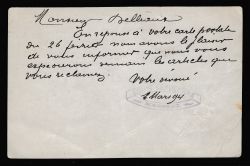 Monsieur Dellieux
En réponse à votre carte postale
du 26 février nous avons le plaisir
de vous informer que nous vous
expédierons demain les articles que
vous réclamez.
Votre dévoué